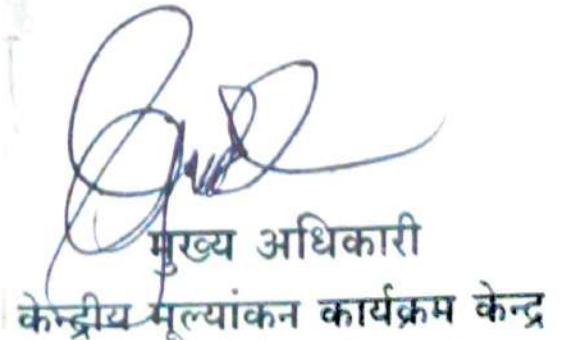 मुख्य अधिकारी
केन्द्रीय मूल्यांकन कार्यक्रम केन्द्र